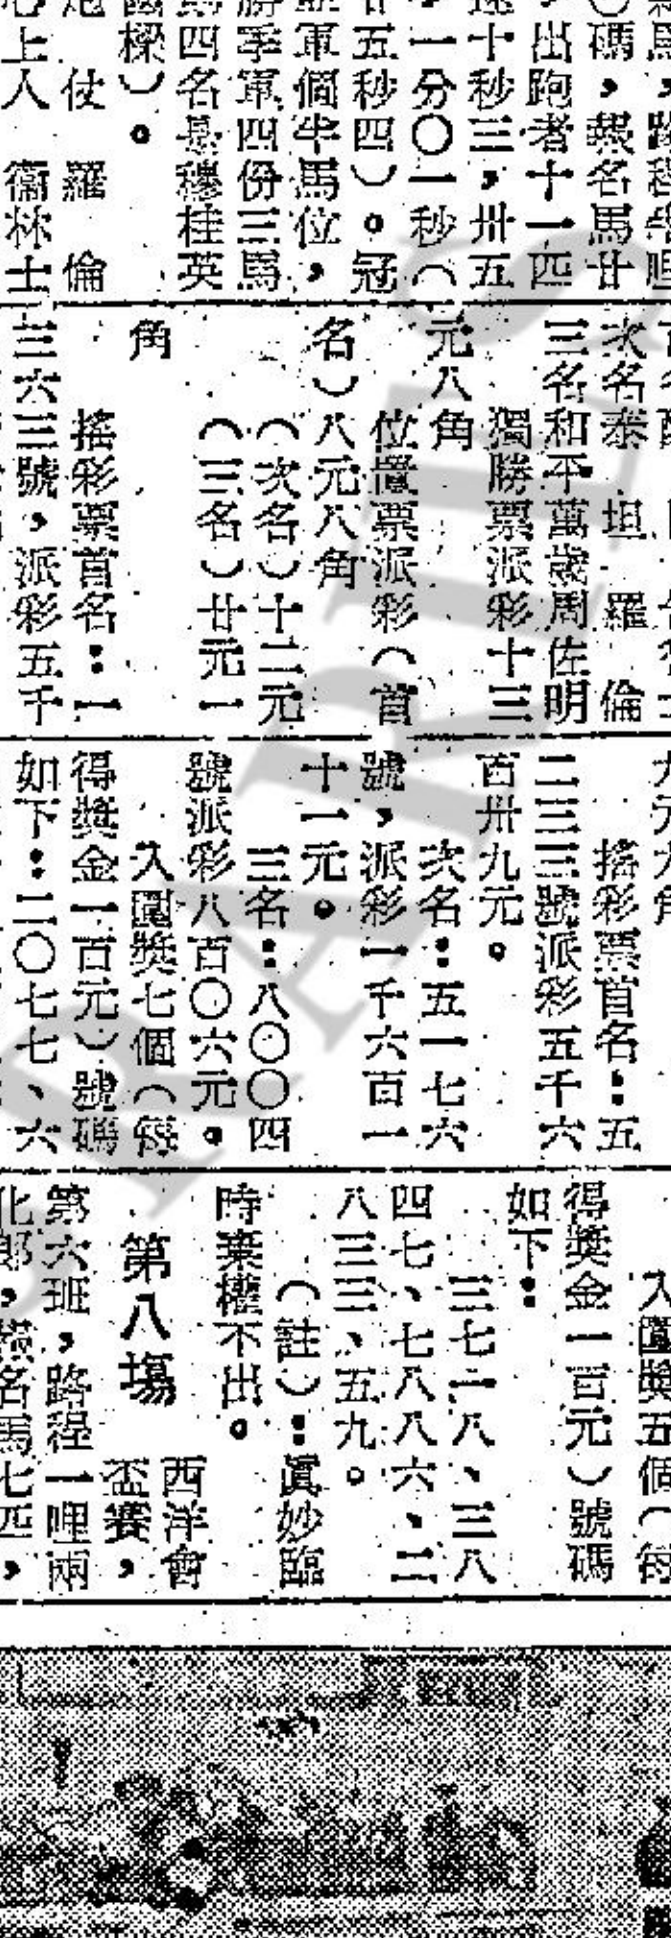 出跑者十一匹
十秒三,卅五
一分〇一秒(
五秒四)。冠
軍個半馬位,
季軍四份三馬
四名是穆桂英
樑)。
仗 羅 倫
上人 衞林士
次名泰 坦 羅 倫
三名和平萬歲周佐明
獨勝票派彩十三
元八角
位置票派彩(首
名)八元八角
(次名)十二元
(三名)廿元一
角
搖彩票首名:一
三六三號,派彩五千
搖彩票首名:五
二三三號派彩五千六
百卅九元。
次名:五一七六
號,派彩一千六百一
十一元。
三名:八〇〇四
號派彩八百〇六元。
入圍獎七個(每
得獎金一百元)號碼
如下:二〇七七、六
入圍獎五個(每
得獎金一百元)號碼
如下:
三七二八、三八
四七、七八八六、二
八三三、五九。
(註):眞妙臨
時棄權不出。
第八場
西洋會
盃賽,
第六班,路程一哩兩
名馬七匹,